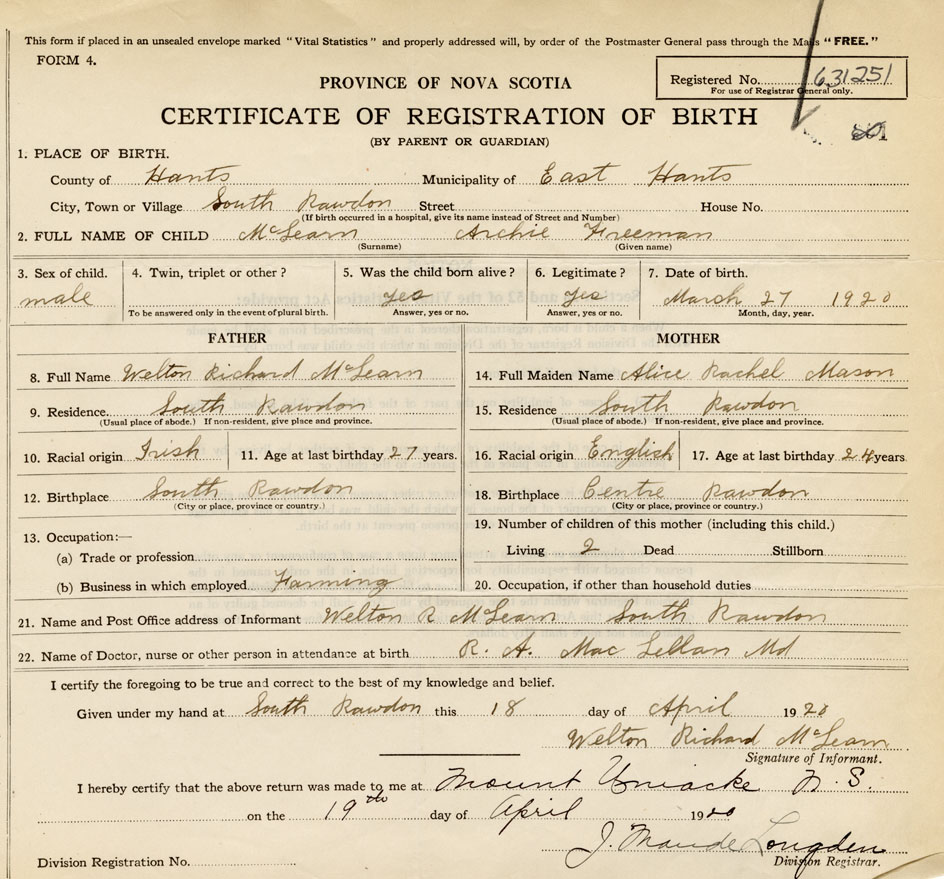 This form if placed in an unsealed envelope marked "Vital Statistics" and properly addressed will, by order of the Postmaster General pass through the Mails "FREE."
FORM 4.
PROVINCE OF NOVA SCOTIA
Registered No. 631251
For use of Registrar General only.
CERTIFICATE OF REGISTRATION OF BIRTH
(BY PARENT OR GUARDIAN)
1. PLACE OF BIRTH.
County of Hants Municipality of East Hants
City, Town or Village South Rawdon Street House No.
(If birth occurred in a hospital, give its name instead of Street and Number)
2. FULL NAME OF CHILD McLearn Archie Freeman
(Surname) (Given name)
3. Sex of child. 4. Twin, triplet or other? 5. Was the child born alive? 6. Legitimate? 7. Date of birth.
male yes yes March 27 1920
To be answered only in the event of plural birth. Answer, yes or no. Answer, yes or no. Month, day, year.
FATHER MOTHER
8. Full Name Welton Richard McLearn 14. Full Maiden Name Alice Rachel Mason
9. Residence. South Rawdon 15. Residence South Rawdon
(Usual place of abode.) If non-resident, give place and province. (Usual place of abode.) If non-resident, give place and province.
10. Racial origin Irish 11. Age at last birthday 27 years. 16. Racial origin English 17. Age at last birthday 24 years.
12. Birthplace South Rawdon 18. Birthplace Centre Rawdon
(City or place, province or country.) (City or place, province or country.)
13. Occupation:— 19. Number of children of this mother (including this child.)
(a) Trade or profession Living 2 Dead Stillborn
(b) Business in which employed Farming 20. Occupation, if other than household duties
21. Name and Post Office address of Informant Welton R McLearn South Rawdon
22. Name of Doctor, nurse or other person in attendance at birth R. A. Mac Lellan Md
I certify the foregoing to be true and correct to the best of my knowledge and belief.
Given under my hand at South Rawdon this 18 day of April 1920
Welton Richard McLearn
Signature of Informant.
I hereby certify that the above return was made to me at Mount Uniacke N. S.
on the 19th day of April 1920
J. Maude Longden
Division Registrar.
Division Registration No.